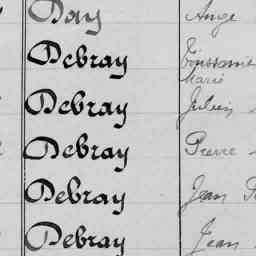 Day Ange
Debray Toussaine
Marie
Debray Julien
Debray Pierre
Debray Jean
Debray Jean